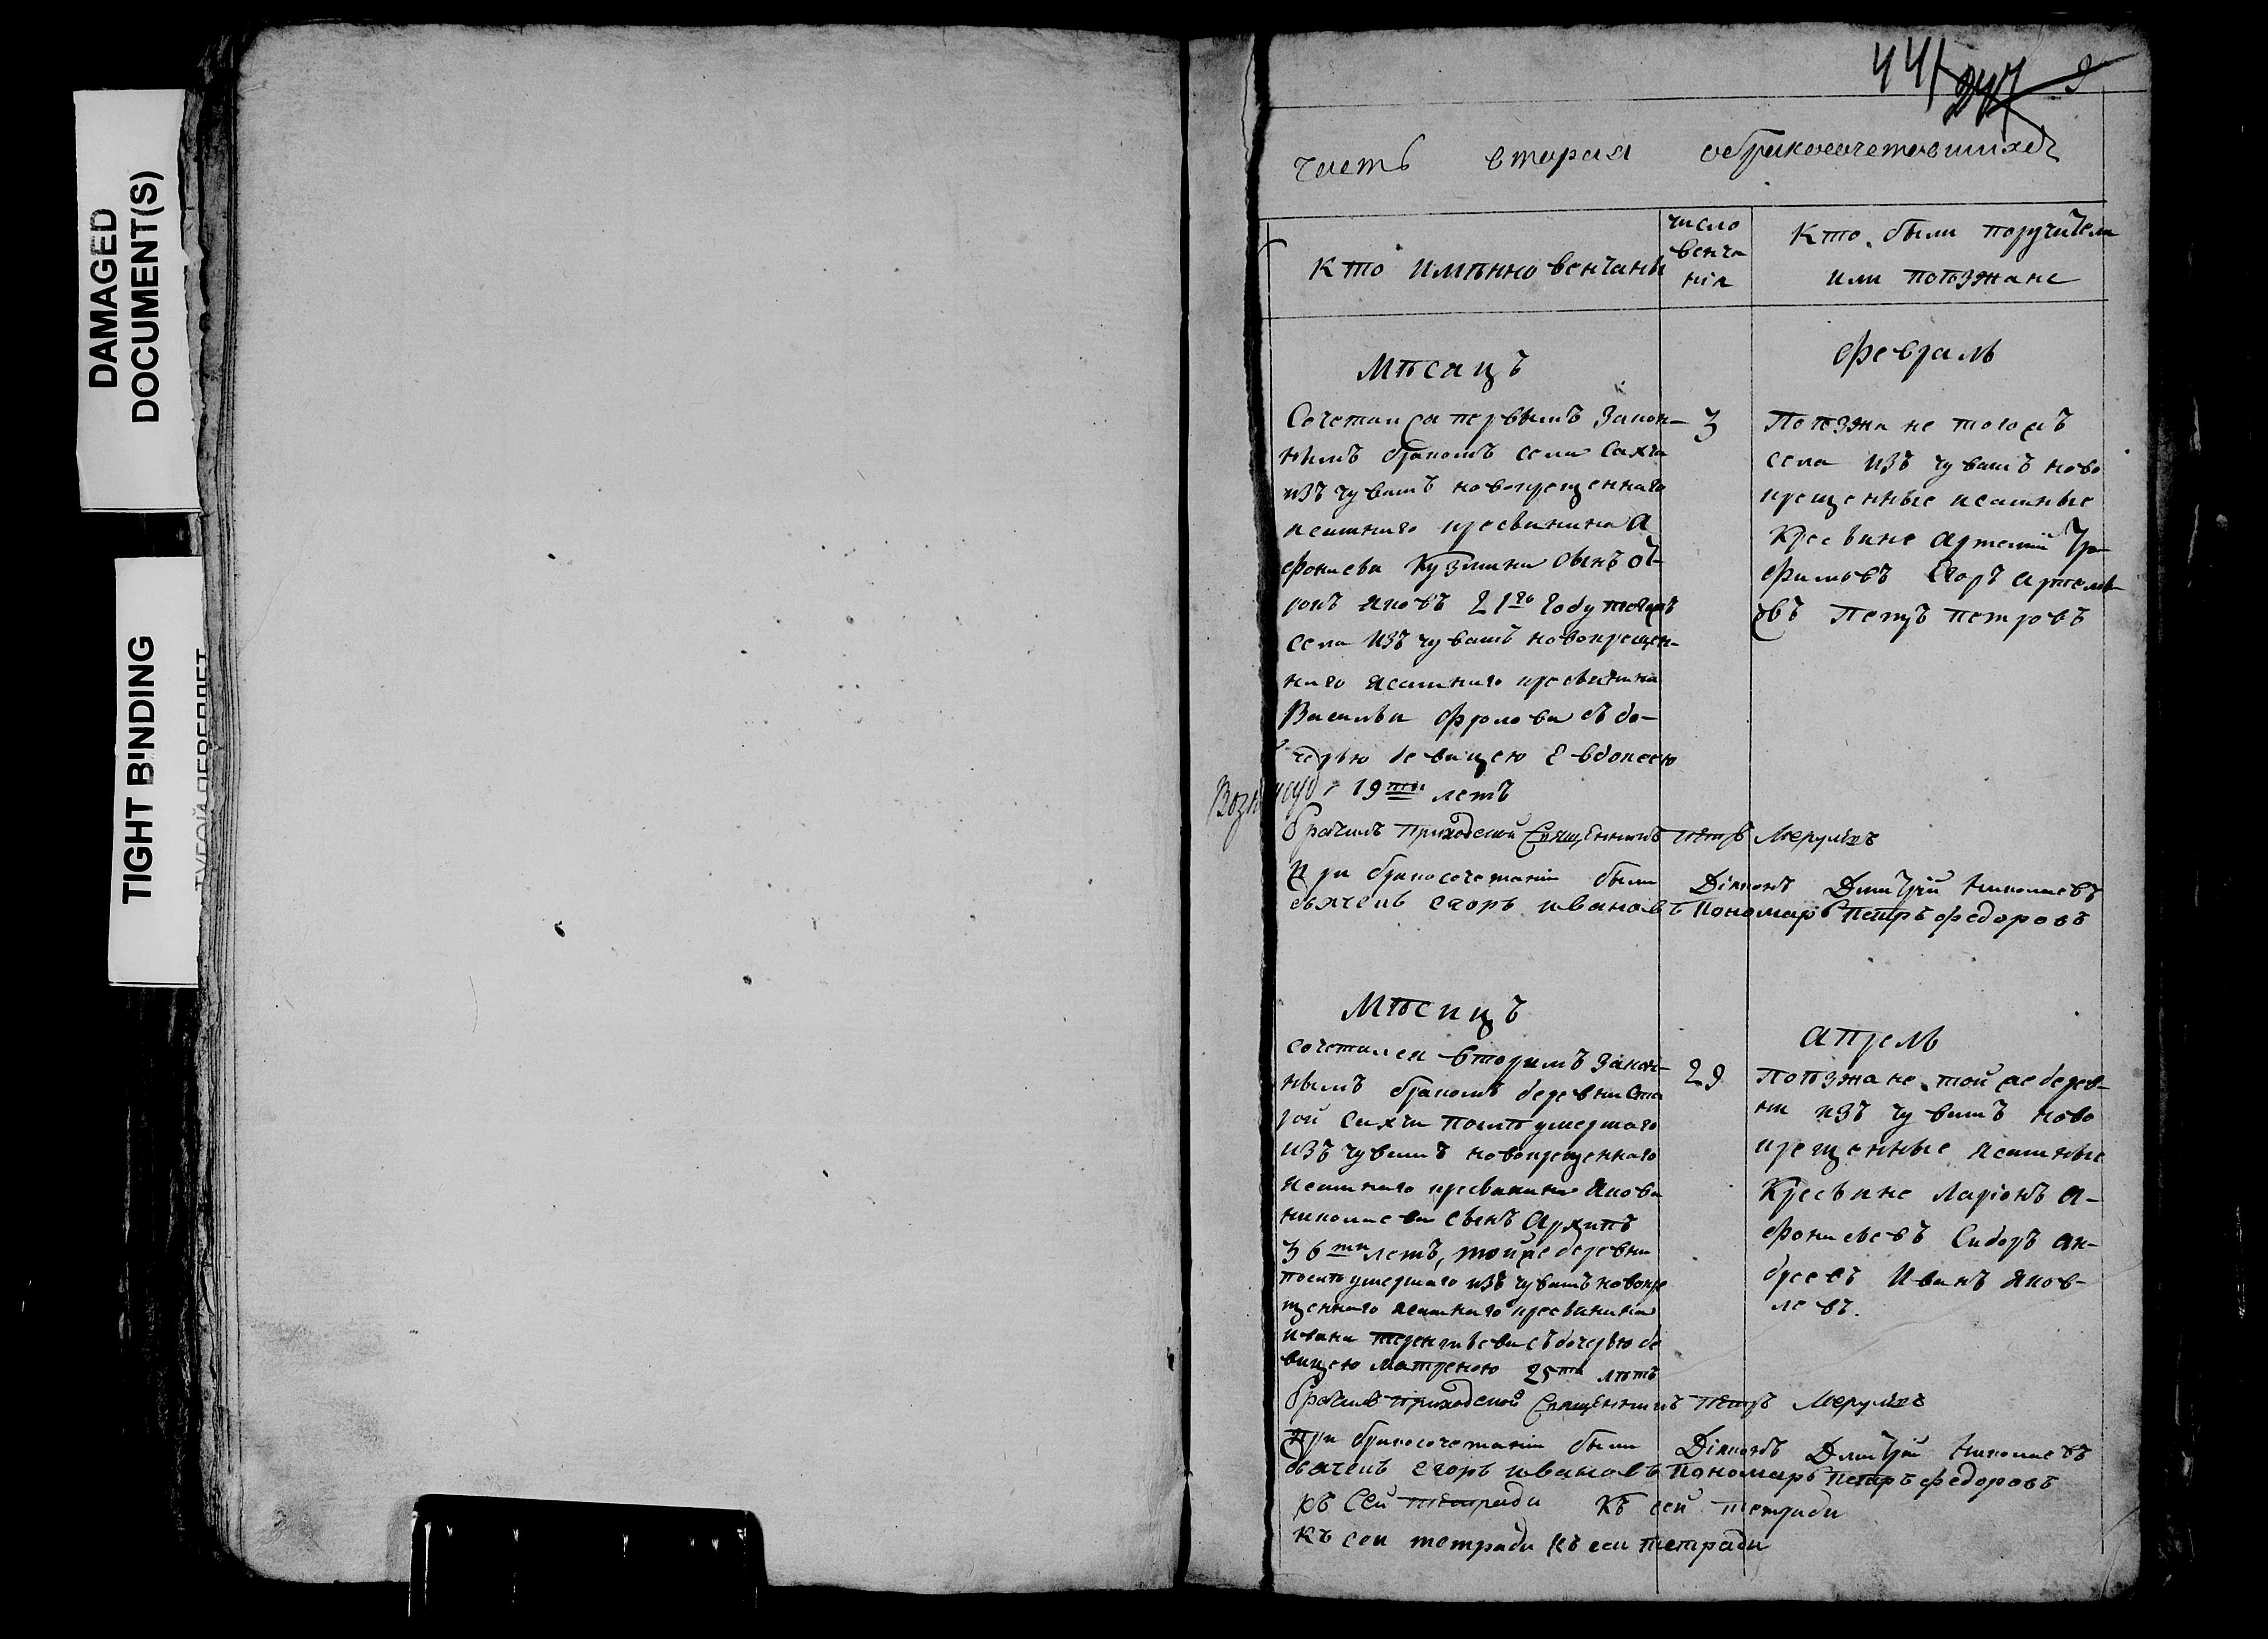 DAMAGED
DOCUMENT(S)
TIGHT BINDING
ТУГОЙ ПЕРЕПЛЕТ
441 9
часть вторая обракосочетавшихся
Кто имянно венчаны
число
венча
нія
Кто были поручители
или поѣзжане
Мѣсяцъ
февраль
Сочетался первымъ закон-
нымъ бракомъ села Сахча
изъ чувашъ новокрещеннаго
ясашнаго кресьянина А
фонасева Кузмина сынъ
яковъ 21го году тогожъ
села изъ чувашъ новокрещен-
наго ясашнаго кресьянина
Васильа фролова съ до-
черью девицею Евдокеею
19ти летъ
3
Поѣзжа не тогожъ
села изъ чувашъ ново
крещенные ясашные
Кресьяне Артемій Тро-
фимовъ Егоръ артемь-
овъ Петръ петровъ
Возн
Брачилъ приходской Священникъ петръ Меркульевъ
При бракосочетаніи были Діаконъ Дмитрій Николаевъ
дьячекъ егоръ ивановъ Пономарь петръ федоровъ
Мѣсяцъ
апрель
сочетался вторымъ закон-
нымъ бракомъ деревни Ста
рой Сахчи послѣ умершаго
изъ чувашъ новокрещеннаго
ясашнаго кресьянина якова
николаева сынъ Архипъ
36ти летъ, тойже деревни
послѣ умершаго изъ чувашъ новокре
щеннаго ясашнаго кресьянина
ивана терентьева съ дочерью де
вицею матреною 25ти лѣтъ
29
поѣзжа не той же дерев-
ни изъ чувашъ ново
крещенные ясашные
Кресьяне Ларіонъ А-
фонасьевъ Сидоръ ан-
дреевъ Иванъ яков-
левъ.
Брачилъ приходской Священникъ петръ Меркульевъ
При бракосочетаніи были Діаконъ Дмитрій Николаевъ
дьячекъ егоръ ивановъ Пономарь петръ федоровъ
къ Сей тетради Къ сей тетради
Къ сеи тетради къ сеи тетради